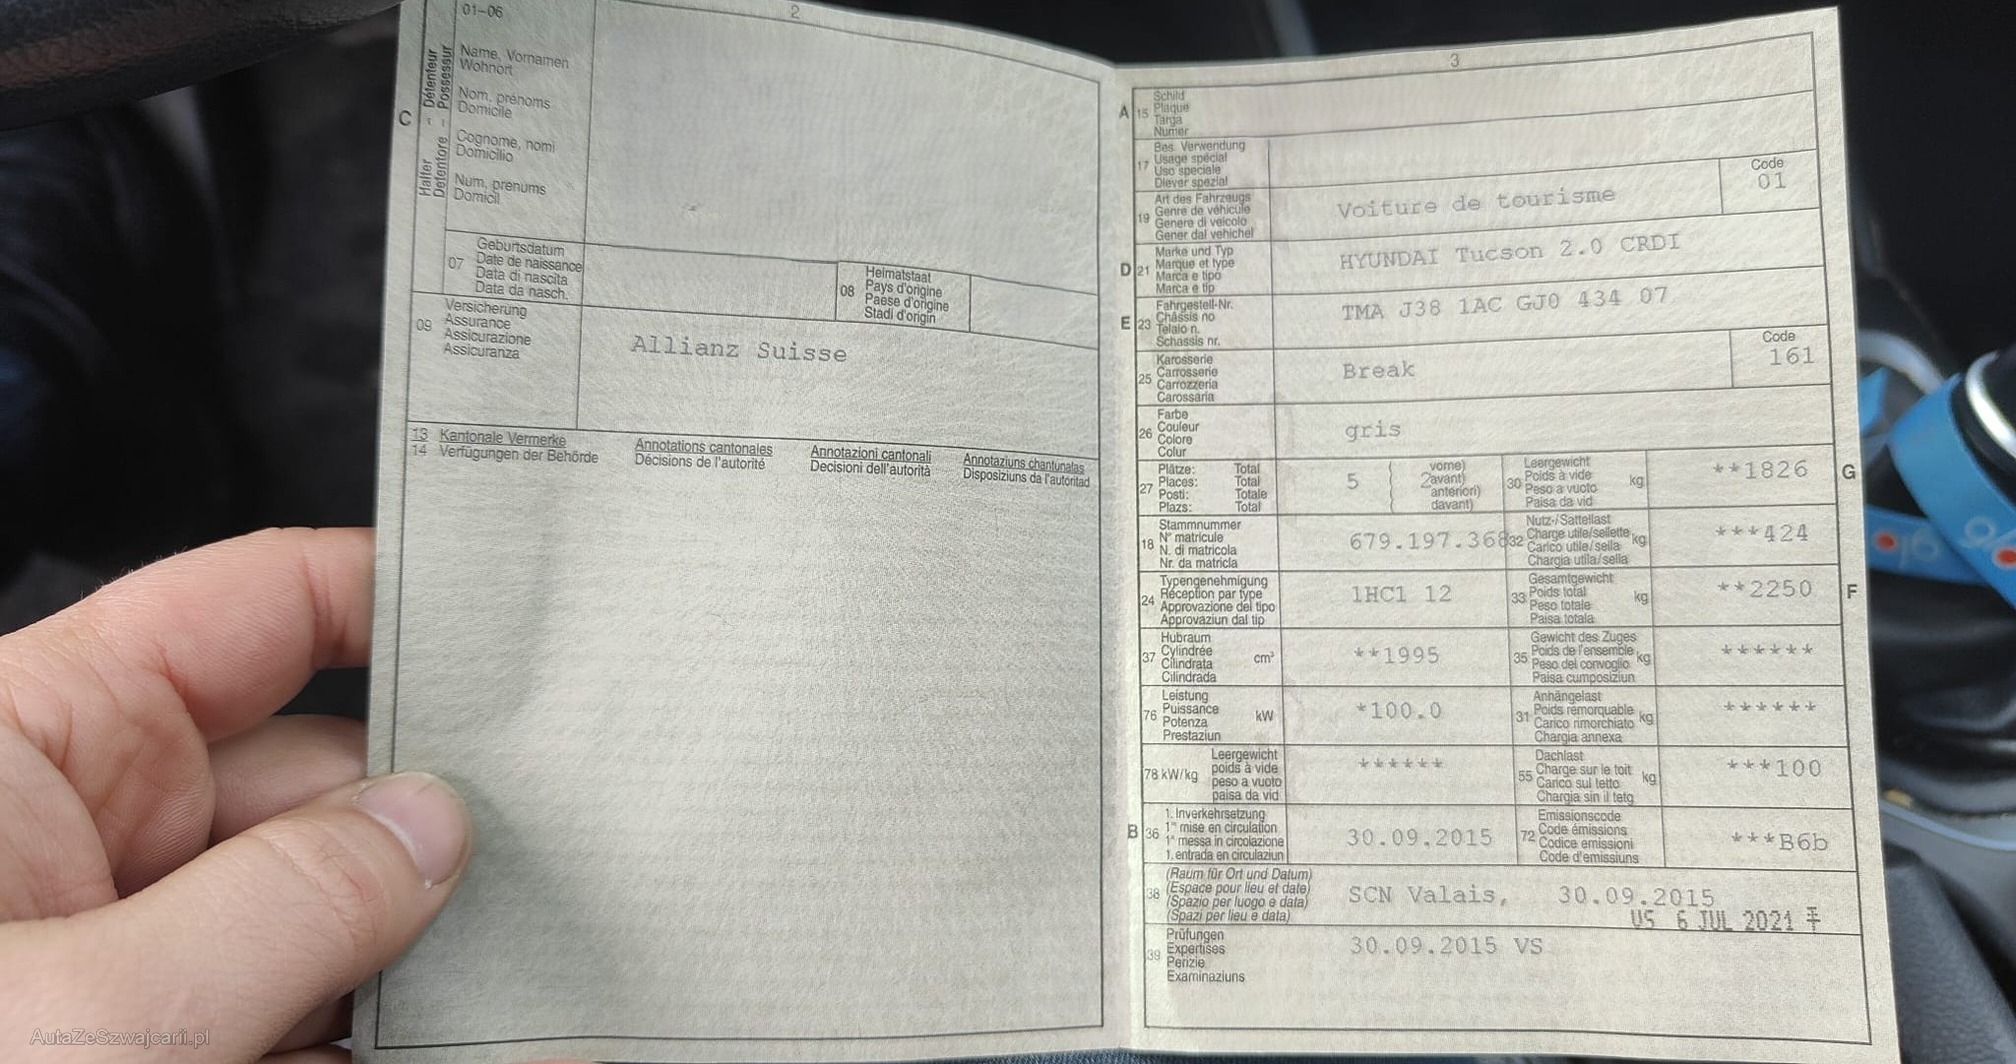 2
01-06
Détenteur
Possessur
Halter
Detentore
C
Name, Vornamen
Wohnort
Nom, prénoms
Domicile
Cognome, nomi
Domicilio
Num, prenums
Domicil
07
Geburtsdatum
Date de naissance
Data di nascita
Data da nasch.
08
Heimatstaat
Pays d'origine
Paese d'origine
Stadi d'origin
09
Versicherung
Assurance
Assicurazione
Assicuranza
Allianz Suisse
13 Kantonale Vermerke Annotations cantonales Annotazioni cantonali Annotaziuns chantunalas
14 Verfügungen der Behörde Décisions de l'autorité Decisioni dell'autorità Disposiziuns da l'autoritad
3
A 15
Schild
Plaque
Targa
Numer
17
Bes. Verwendung
Usage spécial
Uso speciale
Diever spezial
19
Art des Fahrzeugs
Genre de véhicule
Genere di veicolo
Gener dal vehichel
Voiture de tourisme
Code
01
D 21
Marke und Typ
Marque et type
Marca e tipo
Marca e tip
HYUNDAI Tucson 2.0 CRDI
E 23
Fahrgestell-Nr.
Châssis no
Telaio n.
Schassis nr.
TMA J38 1AC GJ0 434 07
25
Karosserie
Carrosserie
Carrozzeria
Carossaria
Break
Code
161
26
Farbe
Couleur
Colore
Colur
gris
27
Plätze: Total
Places: Total
Posti: Totale
Plazs: Total
5
2
vorne)
avant)
anteriori)
davant)
30
Leergewicht
Poids à vide
Peso a vuoto
Paisa da vid
kg
**1826
G
18
Stammnummer
N° matricule
N. di matricola
Nr. da matricla
679.197.368
32
Nutz-/Sattellast
Charge utile/sellette
Carico utile/sella
Chargia utila/sella
kg
***424
24
Typengenehmigung
Réception par type
Approvazione del tipo
Approvaziun dal tip
1HC1 12
33
Gesamtgewicht
Poids total
Peso totale
Paisa totala
kg
**2250
F
37
Hubraum
Cylindrée
Cilindrata
Cilindrada
cm³
**1995
35
Gewicht des Zuges
Poids de l'ensemble
Peso del convoglio
Paisa cumposiziun
kg
******
76
Leistung
Puissance
Potenza
Prestaziun
kW
*100.0
31
Anhängelast
Poids remorquable
Carico rimorchiato
Chargia annexa
kg
******
78 kW/kg
Leergewicht
poids à vide
peso a vuoto
paisa da vid
******
55
Dachlast
Charge sur le toit
Carico sul tetto
Chargia sin il tetg
kg
***100
B 36
1. Inverkehrsetzung
1re mise en circulation
1a messa in circolazione
1. entrada en circulaziun
30.09.2015
72
Emissionscode
Code émissions
Codice emissioni
Code d'emissiuns
***B6b
38
(Raum für Ort und Datum)
(Espace pour lieu et date)
(Spazio per luogo e data)
(Spazi per lieu e data)
SCN Valais, 30.09.2015
US 6 JUL 2021
39
Prüfungen
Expertises
Perizie
Examinaziuns
30.09.2015 VS
AutaZeSzwajcarii.pl